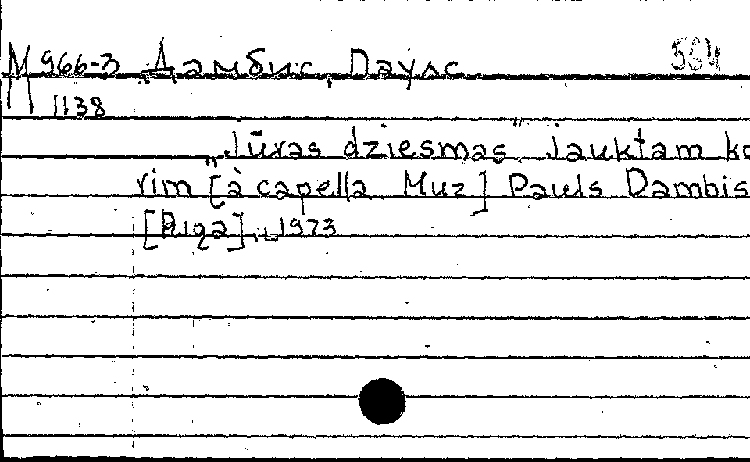 М 966-3 Дамбис, Паулс 564
1138
„Jūras dziesmas" Jauktam ko
rim [à capella Muz] Pauls Dambis
[Riga], 1973